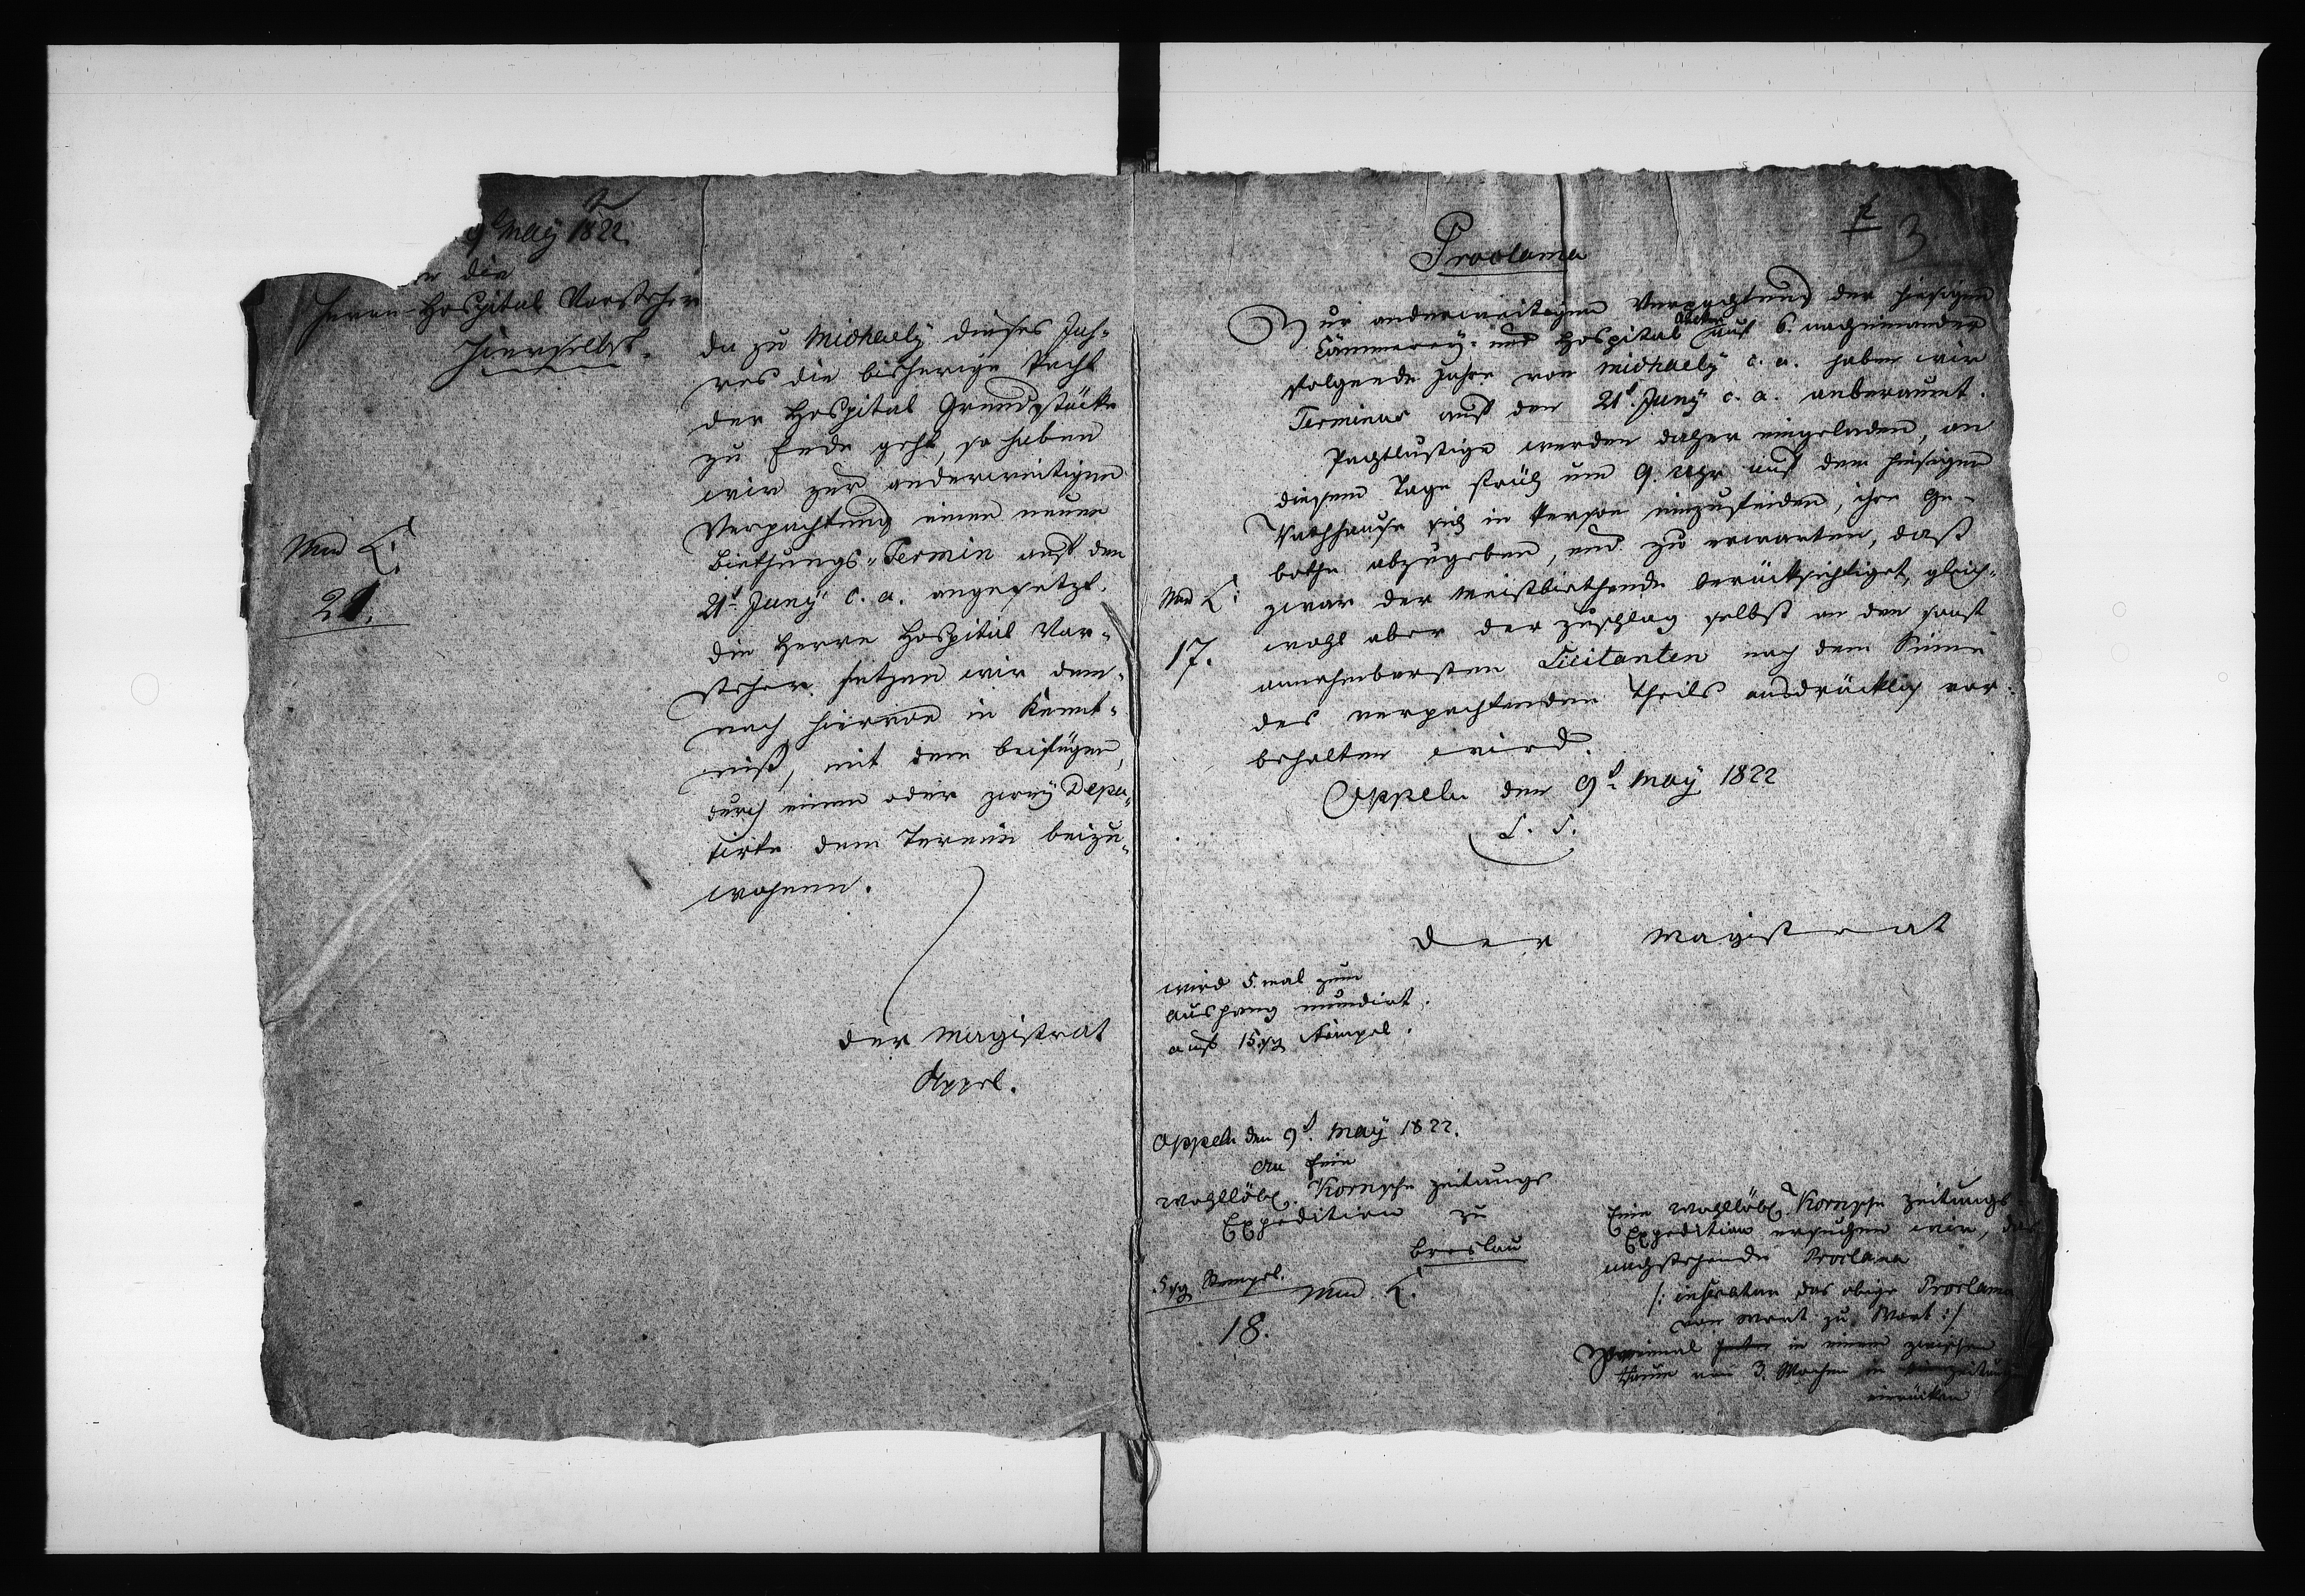 9t May 1822.
n die
Herrn Hospital Vorsteher
Hierselbst.
Da zu Michaely dieses Jah-
res die bisherige Pacht
der Hospital Grundstücke
zu Ende geht, so haben
wir zur anderweitigen
Verpachtung einen neuen
Biethungs-Termin auf den
21t Juny c. a. angesetzt.
Die Herrn Hospital Vor-
steher setzen wir dem-
nach hiervon in Kennt-
niß, mit dem Beifügen,
durch einen oder zwey Depu-
tirte dem Termin beizu-
wohnen.
Mund
21.
Der Magistrat
Oppel.
3
Proclama
Zur anderweitigen Verpachtung der hiesigen
Cämmerey- und Hospital Äcker auf 6 nacheinander
folgende Jahre von Michaely c. a. haben wir
Terminus auf den 21t Juny c. a. anberaumt.
Pachtlustige werden daher eingeladen, an
diesem Tage früh um 9 Uhr auf dem hiesigen
Rathhause sich in Person einzufinden, ihre Ge-
bothe abzugeben, und zu erwarten, daß
zwar der Meistbiethende berücksichtiget, gleich-
wohl aber der Zuschlag selbst an den sonst
annehmbarsten Licitanten nach dem Sinne
des verpachtenden Theils ausdrücklich vor-
behalten wird.
Mund
17.
Oppeln den 9t May 1822
L. S.
Der Magistrat
wird 5 mal zum
Aushang mundirt.
auf 15 sg Stempel.
Oppeln den 9t May 1822.
An Eine
Wohllöbl. Kornsche Zeitungs
Expedition zu
Breslau
5 sg Stempel.
Mund
18.
Eine Wohllöbl. Kornsche Zeitungs-
Expedition ersuchen wir, das
nachstehende Proclama
/: inseratur das obige Proclama
von Wort zu Wort :/
Zweimal in einem Zwischen
raum von 3 Wochen in
einrücken